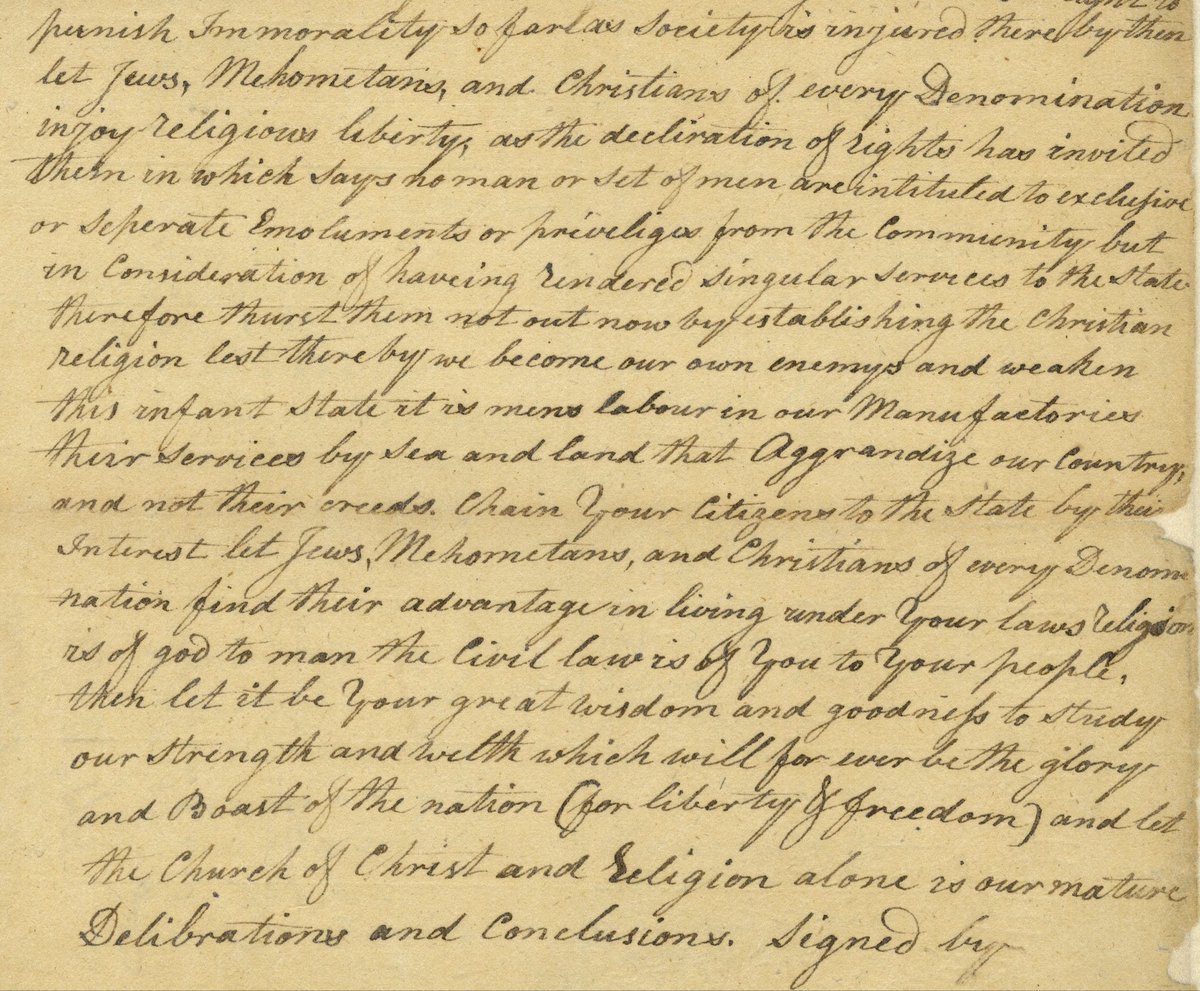 right to
punish Immorality so far as Society is injured there by then
let Jews, Mehometans, and Christians of every Denomination
injoy religious liberty, as the decliration of rights has invited
them in which says no man or set of men are intituled to exclusive
or seperate Emoluments or priveliges from the Community but
in Consideration of haveing rendered singular Services to the State
therefore thurst them not out now by establishing the Christian
religion lest thereby we become our own enemys and weaken
this infant State it is mens labour in our Manufactories
their services by sea and land that Aggrandize our Country,
and not their creeds. Chain Your Citizens to the State by their
Interest let Jews, Mehometans, and Christians of every Denomi
nation find their advantage in living under Your laws religion
is of god to man the Civil law is of You to Your people,
then let it be Your great wisdom and goodness to study
our Strength and welth which will for ever be the glory
and Boast of the nation (for liberty & freedom) and let
the Church of Christ and Religion alone is our mature
Delibrations and Conclusions. Signed by